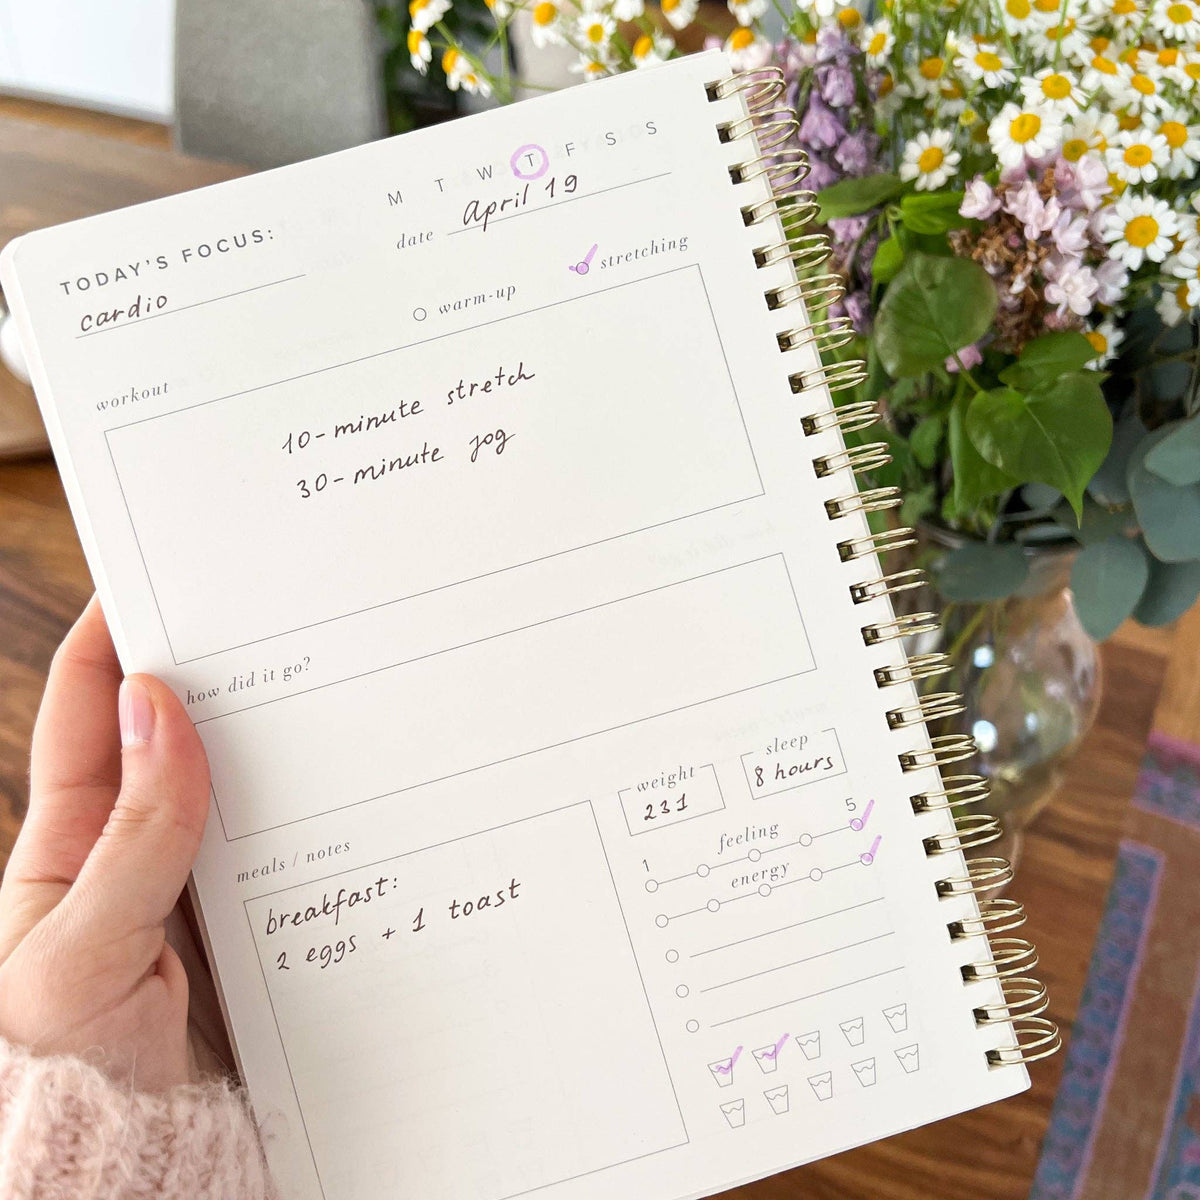 M T W T F S S
TODAY'S FOCUS:
cardio
date april 19
warm-up
stretching
workout
10-minute stretch
30-minute jog
how did it go?
weight
231
sleep
8 hours
1 feeling 5
energy
meals / notes
breakfast:
2 eggs + 1 toast